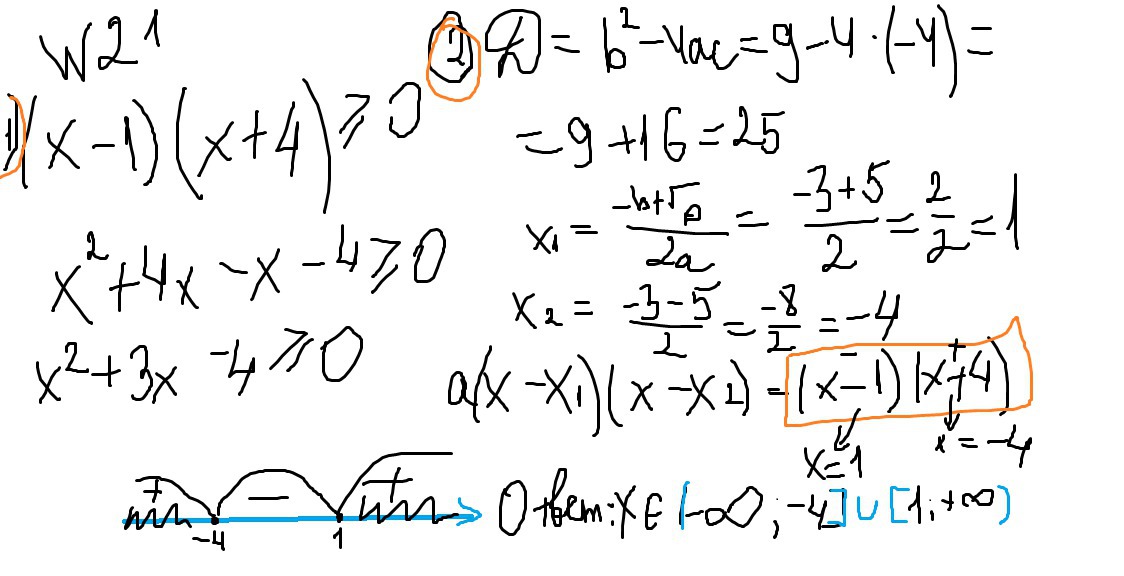 W21
1) (x-1)(x+4) ≥ 0
x²+4x-x-4≥0
x²+3x-4≥0
2) D = b²-4ac = 9-4·(-4) =
= 9+16=25
x₁ = (-b+√D)/2a = (-3+5)/2 = 2/2 = 1
x₂ = (-3-5)/2 = -8/2 = -4
a(x-x₁)(x-x₂) = (x-1)(x+4)
x=1 x=-4
+ - +
-4 1
Ответ: x∈(-∞;-4]∪[1;+∞)